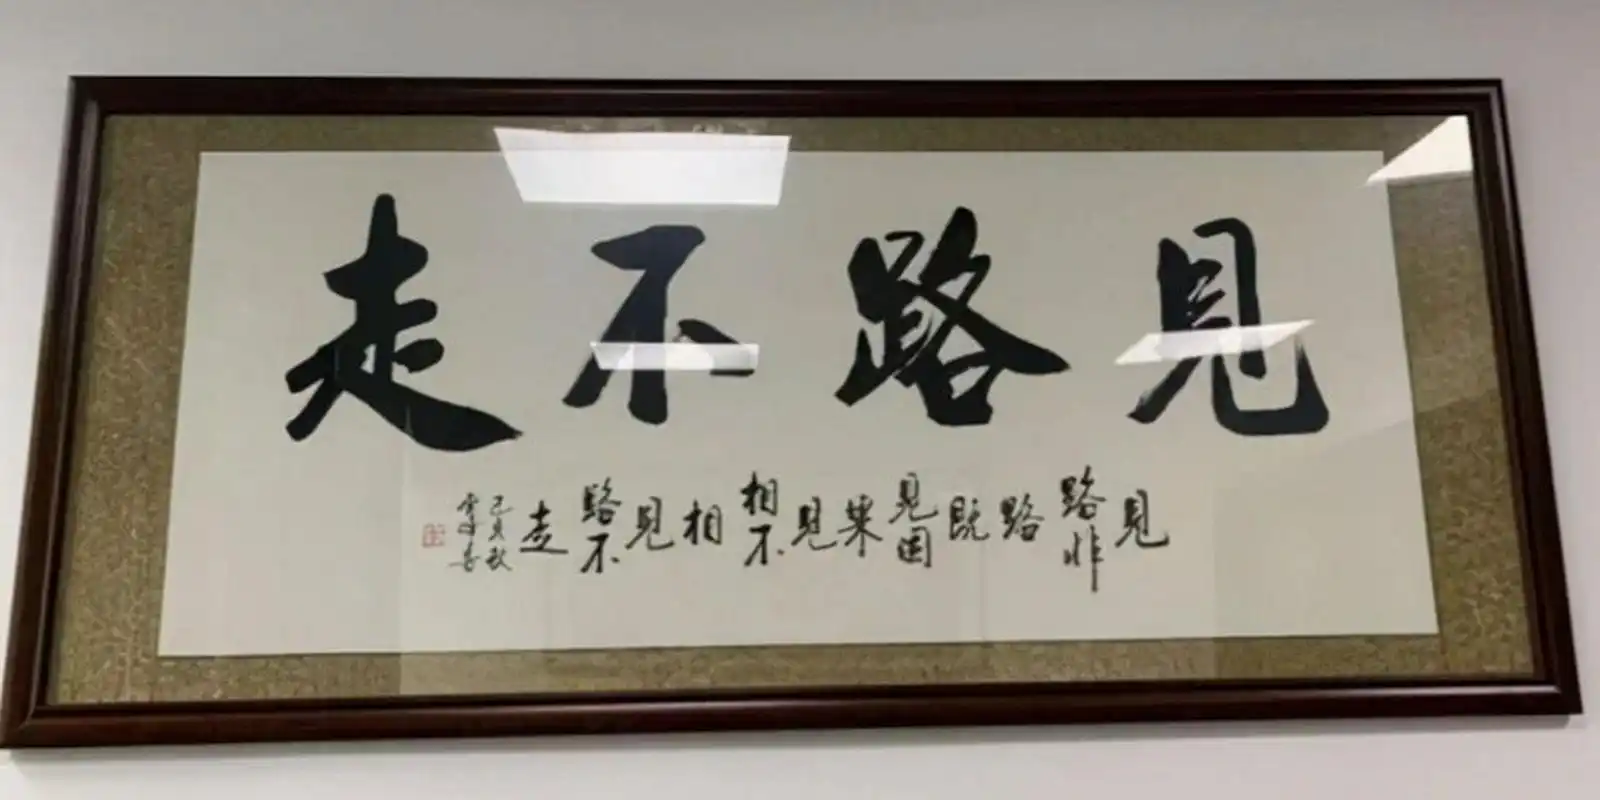 見路不走
見路非路既見因果見相不相見路不走
己亥秋